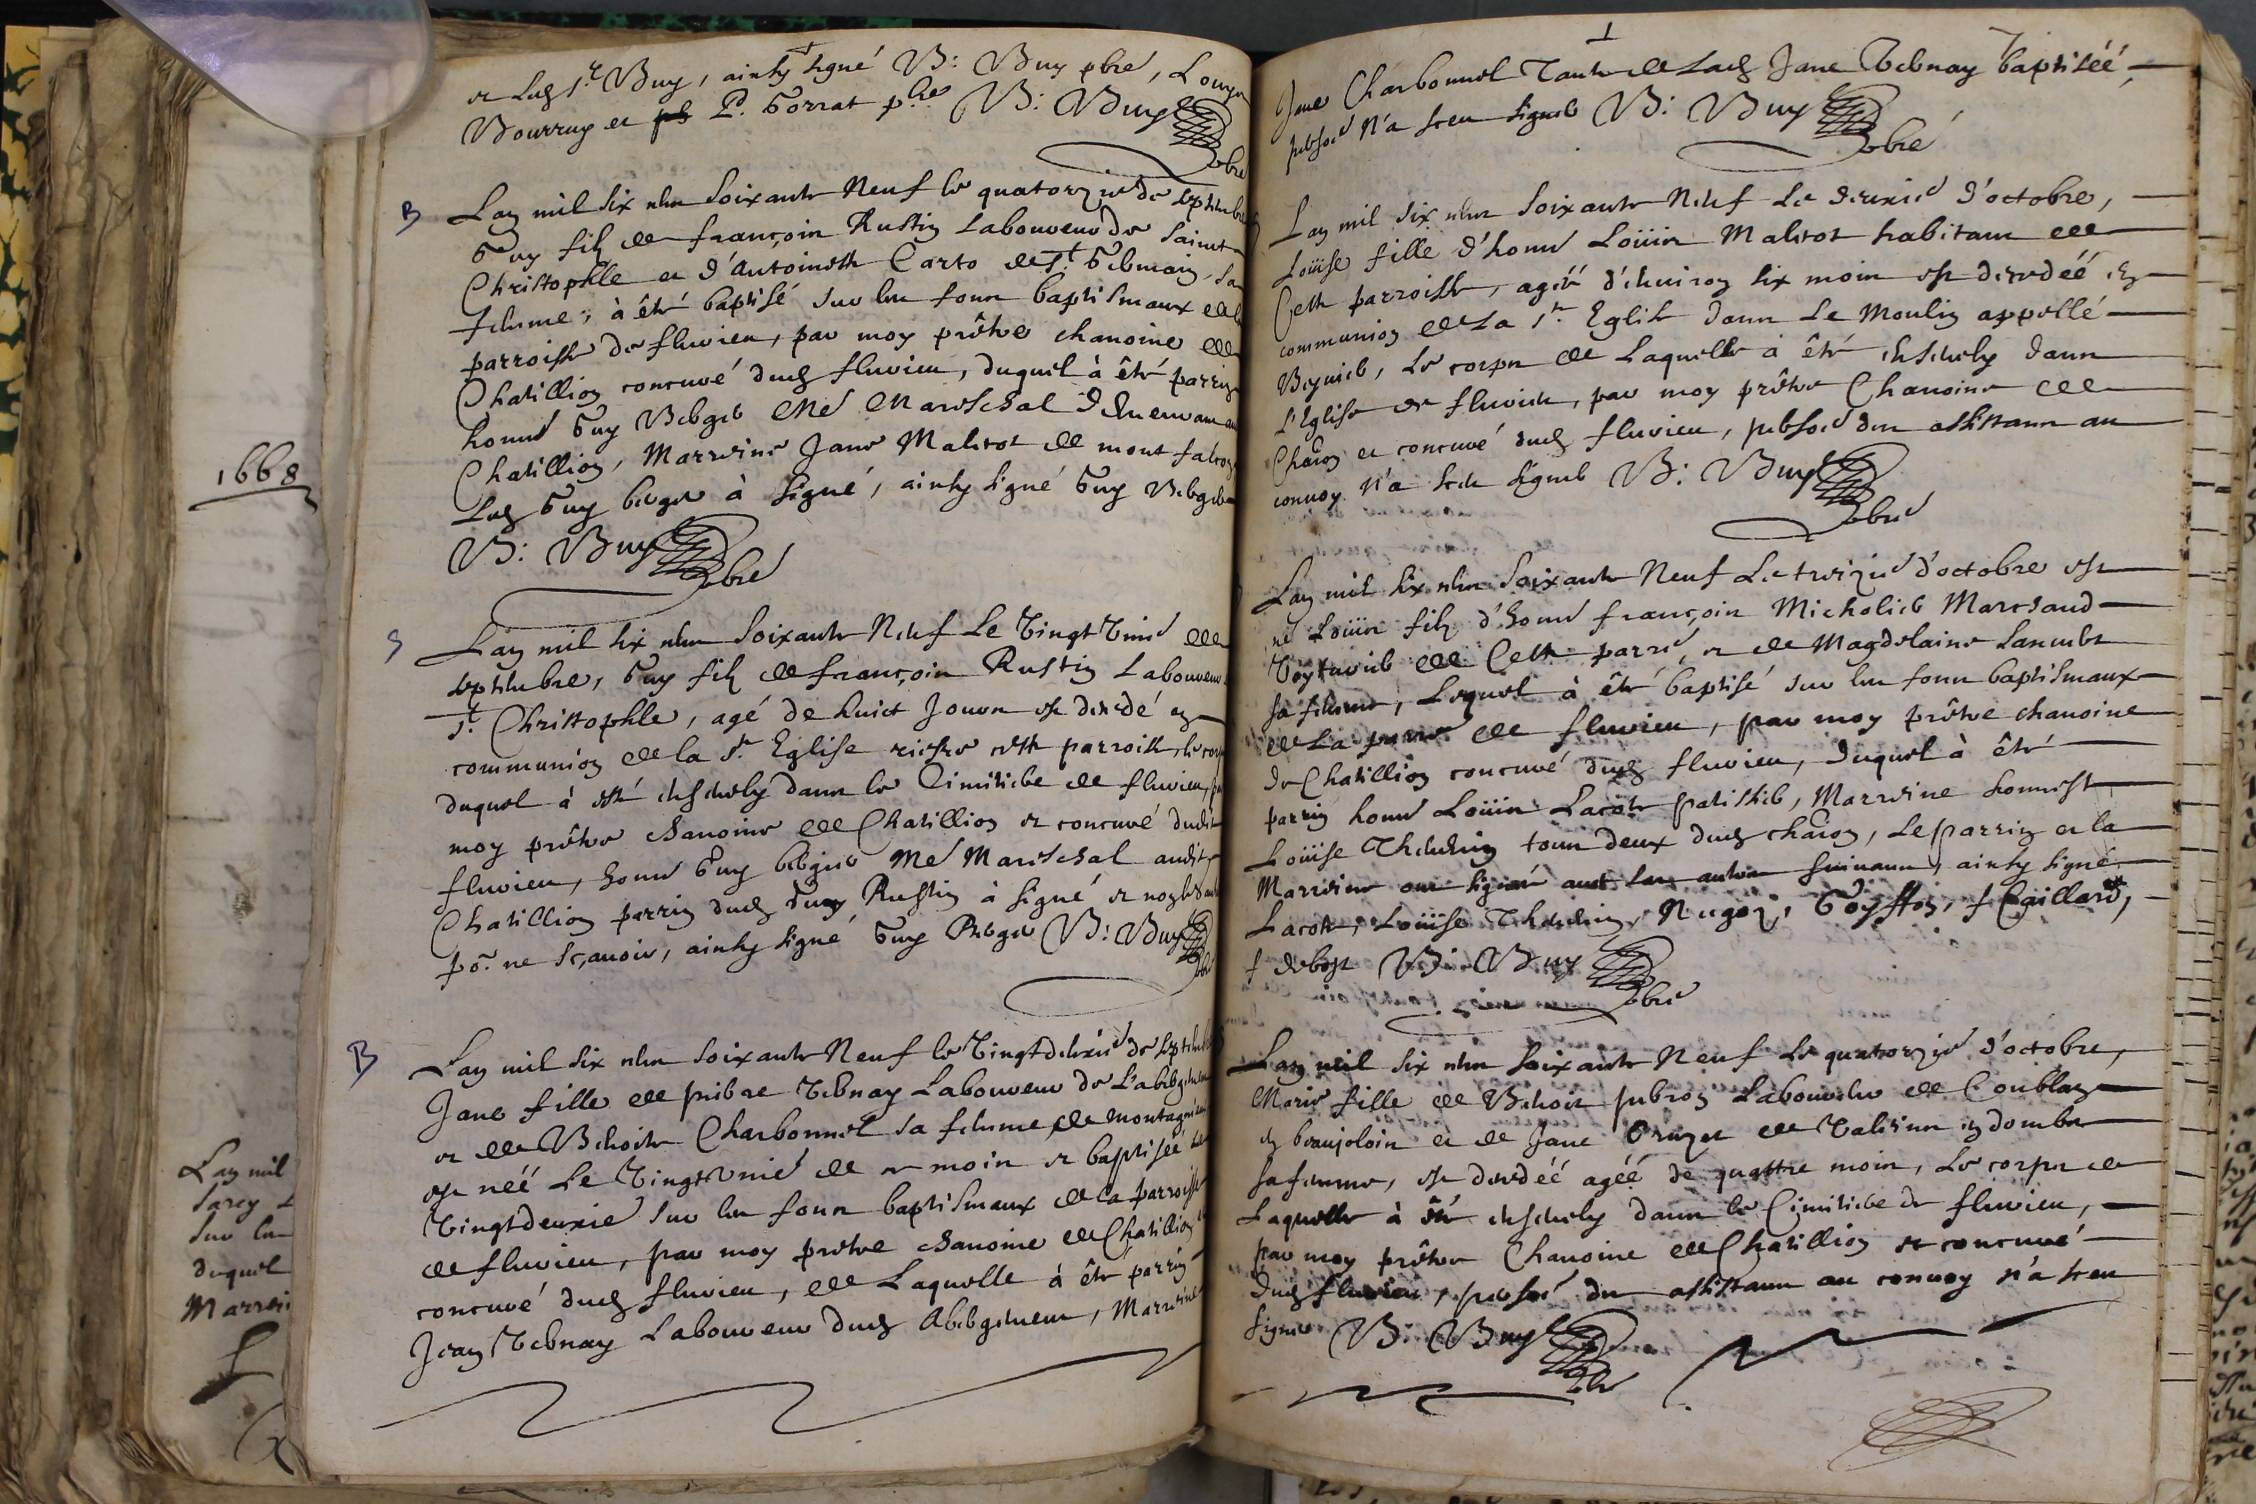 et led sr Buy, ainsy signé B: Buy pbre, Louys
Bourruy et P. Gorrat pbre B: Buy
pbre
B
L'an mil six cens soixante Neuf le quatorzie de septembre
Guy filz de françois Rustin Laboureur de Saint
Christophle et d'Antoinette Carto de St Germain sa
femme, à été baptisé sur les fonts baptismaux de la
parroisse de fluvieu, par moy prêtre chanoine de
Chatillion concuré dud fluvieu, duquel à êté parrin
honne Guy Berger Me Mareschal demeurant au
Chatillion, Marreine Jane Maletot de mont falcon
Led Guy berger à signé, ainsy signé Guy Berger
B: Buy
pbre
S
L'an mil six cens soixante Neuf Le vingt unie de
septembre, Guy filz de françois Rustin Laboureur
St Christophle, agé de huict Jours est decedé en
communion de la Ste Eglise riesre cette parroisse, le corps
duquel à esté ensevely dans le Cimitiere de fluvieu, par
moy prêtre chanoine de Chatillion et concuré dudit
fluvieu, honne Guy berger Me Mareschal audit
Chatillion parrin dud Guy Rustin à signé et non les autres
po. ne sçavoir, ainsy signé Guy Berger B: Buy
pbre
B
L'an mil six cens soixante Neuf le vingt deuxie de septembre
Jane fille de pierre Vernay Laboureur de L'abergement
et de Benoite Charbonnel sa femme, de montagnieu
est néé Le vingt unie de ce mois et baptiséé le
vingtdeuxie sur les fonts baptismaux de la parroisse
de fluvieu, par moy prêtre chanoine de Chatillion
concuré dud fluvieu, de Laquelle à êté parrin
Jean Vernay Laboureur dud Abergement, Marreine
1668
L'an mil
sur les
duquel
Marrei
Jane Charbonnel Tante de Lad Jane Vernay baptiséé,
presoé n'a sceu signer B: Buy
pbre
L'an mil six cens soixante Neuf Le deuxie d'octobre,
Loüise fille d'honne Loüis Maletot habitant de
Cette parroisse, agéé d'environ six mois est decedéé en
communion de La Ste Eglise dans Le Moulin appellé
Beynier, Le corps de Laquelle à êté ensevely dans
L'Eglise de fluvieu, par moy prêtre Chanoine de
Chaon et concuré dud fluvieu, persoe des assistans au
convoy n'a sceu signer B: Buy
pbre
L'an mil six cens soixante Neuf Le treizie d'octobre est
né Loüis filz d'honne françois Micholier Marchand
Voyturier de Cette parre, et de Magdelaine Lancubt
sa femme, Lequel à êté baptisé sur les fonts baptismaux
de La parre de fluvieu, par moy prêtre chanoine
de Chatillion concuré dud fluvieu, duquel à êté
parrin honne Loüis Lacote patissier, Marreine honneste
Loüise Thevenin tous deux dud chaon, Le parrin et la
Marreine ont signé avec les autres suivans, ainsy signé
Lacote, Loüise Thevenin, Nugoz, Goyffon, f Gaillard,
f debost B: Buy
pbre
L'an mil six cens soixante Neuf Le quatorzie d'octobre,
Marie fille de Benoit pubroz Laboureur de Coublan
en beaujolois et de Jane Oruyet de Valeins en dombes
sa femme, est decedéé agéé de quattre mois, Le corps de
Laquelle à été ensevely dans le Cimitiere de fluvieu,
par moy prêtre Chanoine de Chatillion et concuré
dud fluvieu, persoé des assistans au convoy n'a sceu
signer B: Buy
pbre